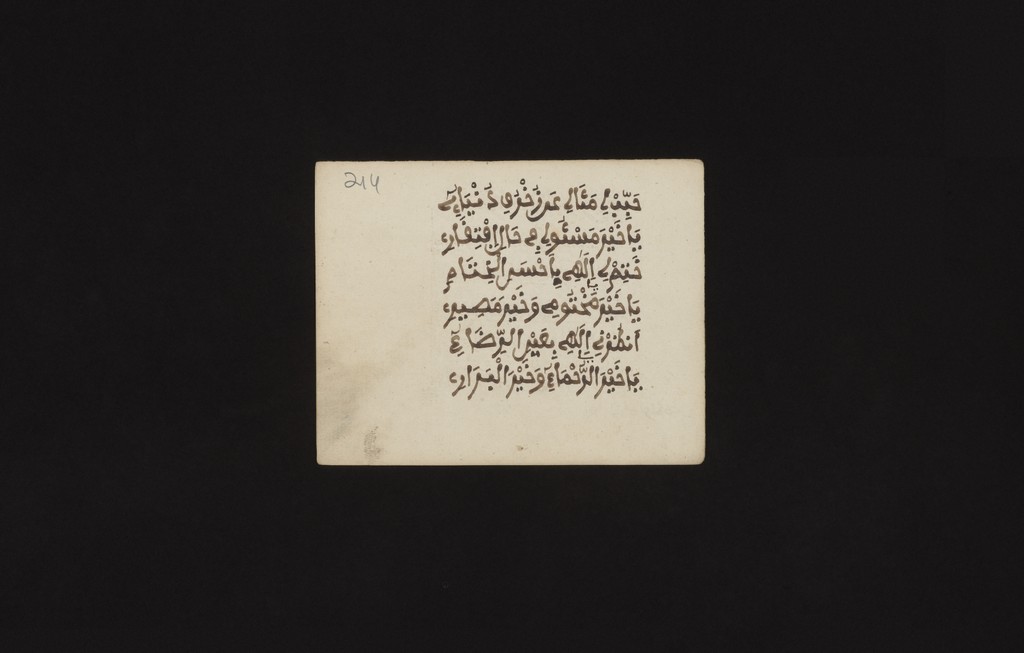 214
حَبِّبْ لِي مَثَالِي عَن زَخْرَفِ دُنْيَاءِي
يَا خَيْرَ مَسْئُولٍ فِي حَالِ افْتِقَارِ
خَتِمْ لِي إِلَهِي بِأَحْسَنِ الْخِتَامِ
يَا خَيْرَ مَخْتُومٍ وَخَيْرَ مَصِيرِ
أَنظُرْنِي إِلَهِي بِعَيْنِ الرِّضَاءِ
يَا خَيْرَ الرُّحْمَاءِ وَخَيْرَ الْبَرَارِ